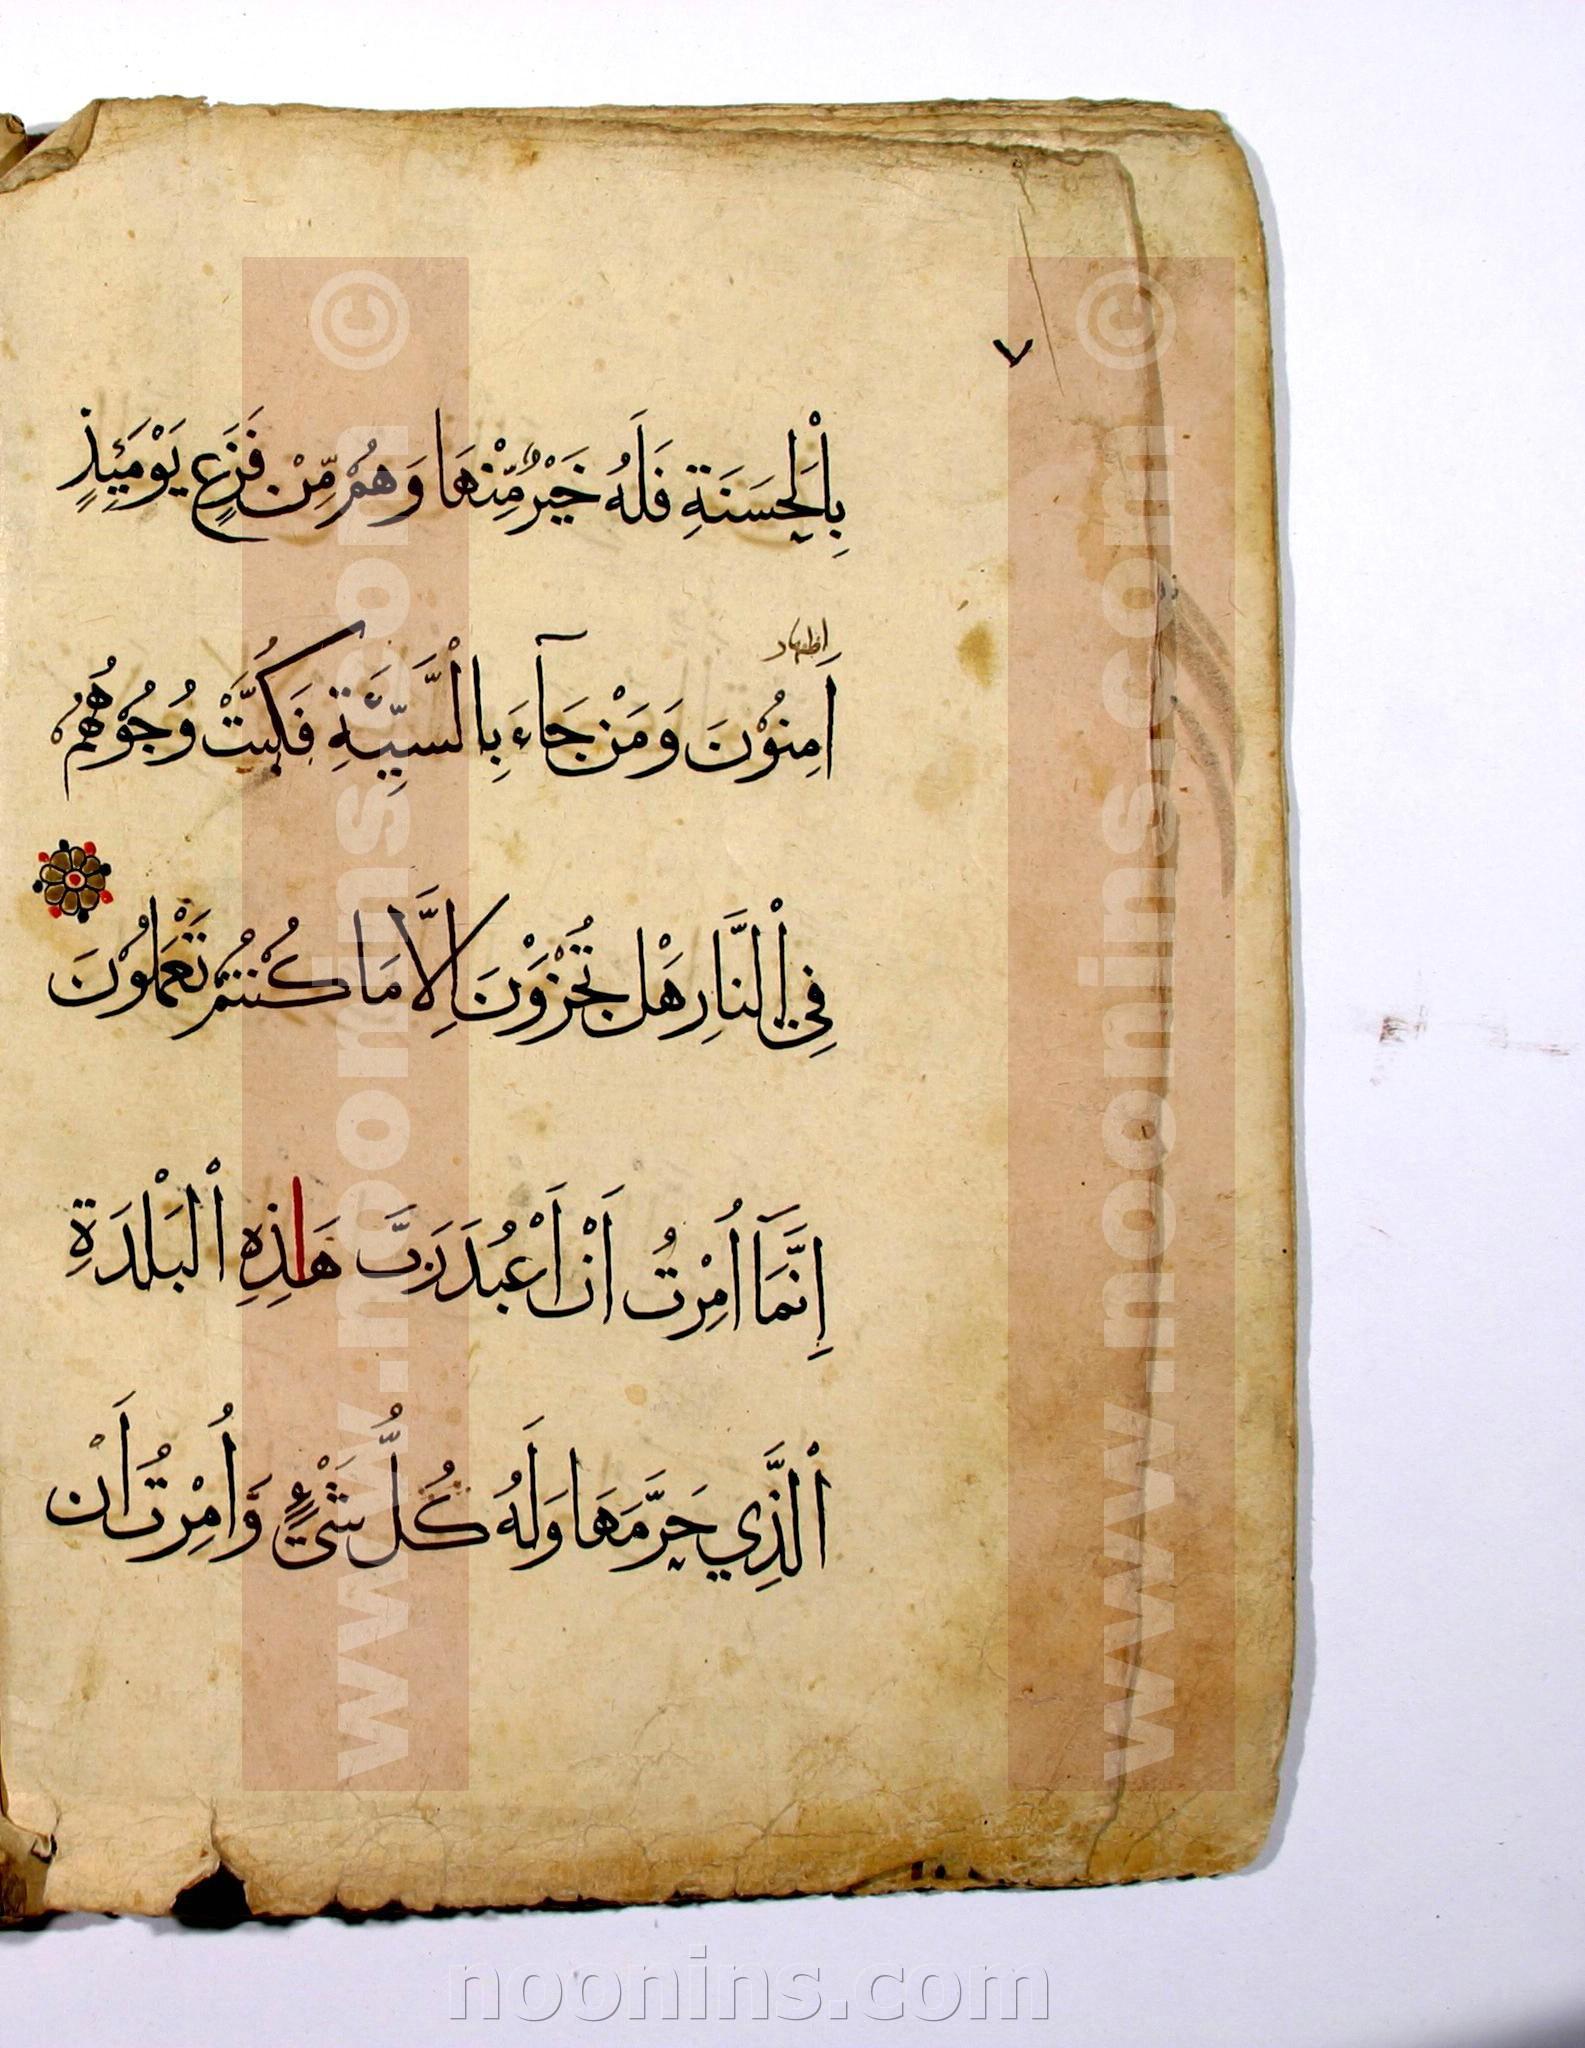 ٧
بِاْلْحَسَنَةِ فَلَهُ خَيْرٌ مِّنْهَا وَهُمْ مِّنْ فَزَعٍ يَوْمَئِذٍ
اظهار
اَمِنُوْنَ وَمَنْ جَآءَ بِالْسَّيِّئَةِ فَكُبَّتْ وُجُوْهُهُمْ
فِي اْلنَّارِ هَلْ تُجْزَوْنَ اِلَّا مَا كُنْتُمْ تَعْمَلُوْنَ
اِنَّمَآ اُمِرْتُ اَنْ اَعْبُدَ رَبَّ هَاذِهِ اْلْبَلْدَةِ
اْلَّذِي حَرَّمَهَا وَلَهُ كُلُّ شَيْءٍ وَاُمِرْتُ اَنْ
www.noonins.com ©
www.noonins.com ©
noonins.com